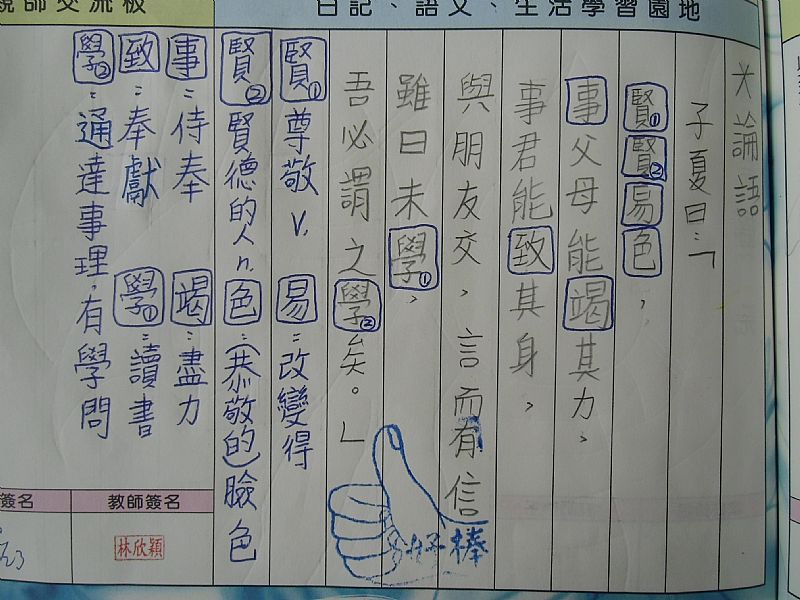 親師交流板
日記、語文、生活學習園地
*論語
子夏曰:「
賢①賢②易色,
事父母能竭其力,
事君能致其身,
與朋友交,言而有信
雖曰未學①,
吾必謂之學②矣。」
賢①尊敬v. 易:改變得
賢②賢德的人n. 色:(恭敬的)臉色
事:侍奉 竭:盡力
致:奉獻 學①:讀書
學②:通達事理,有學問
好棒
教師簽名
林欣穎
簽名